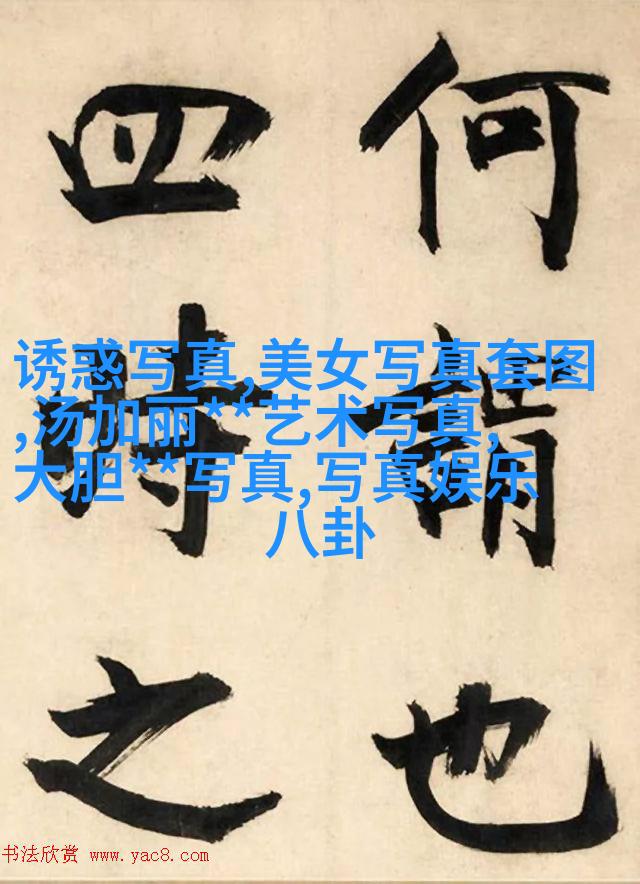 何謂也
四時之
诱惑写真,美女写真套图
,汤加丽**艺术写真,
大胆**写真,写真娱乐
八卦
书法欣赏 www.yac8.com